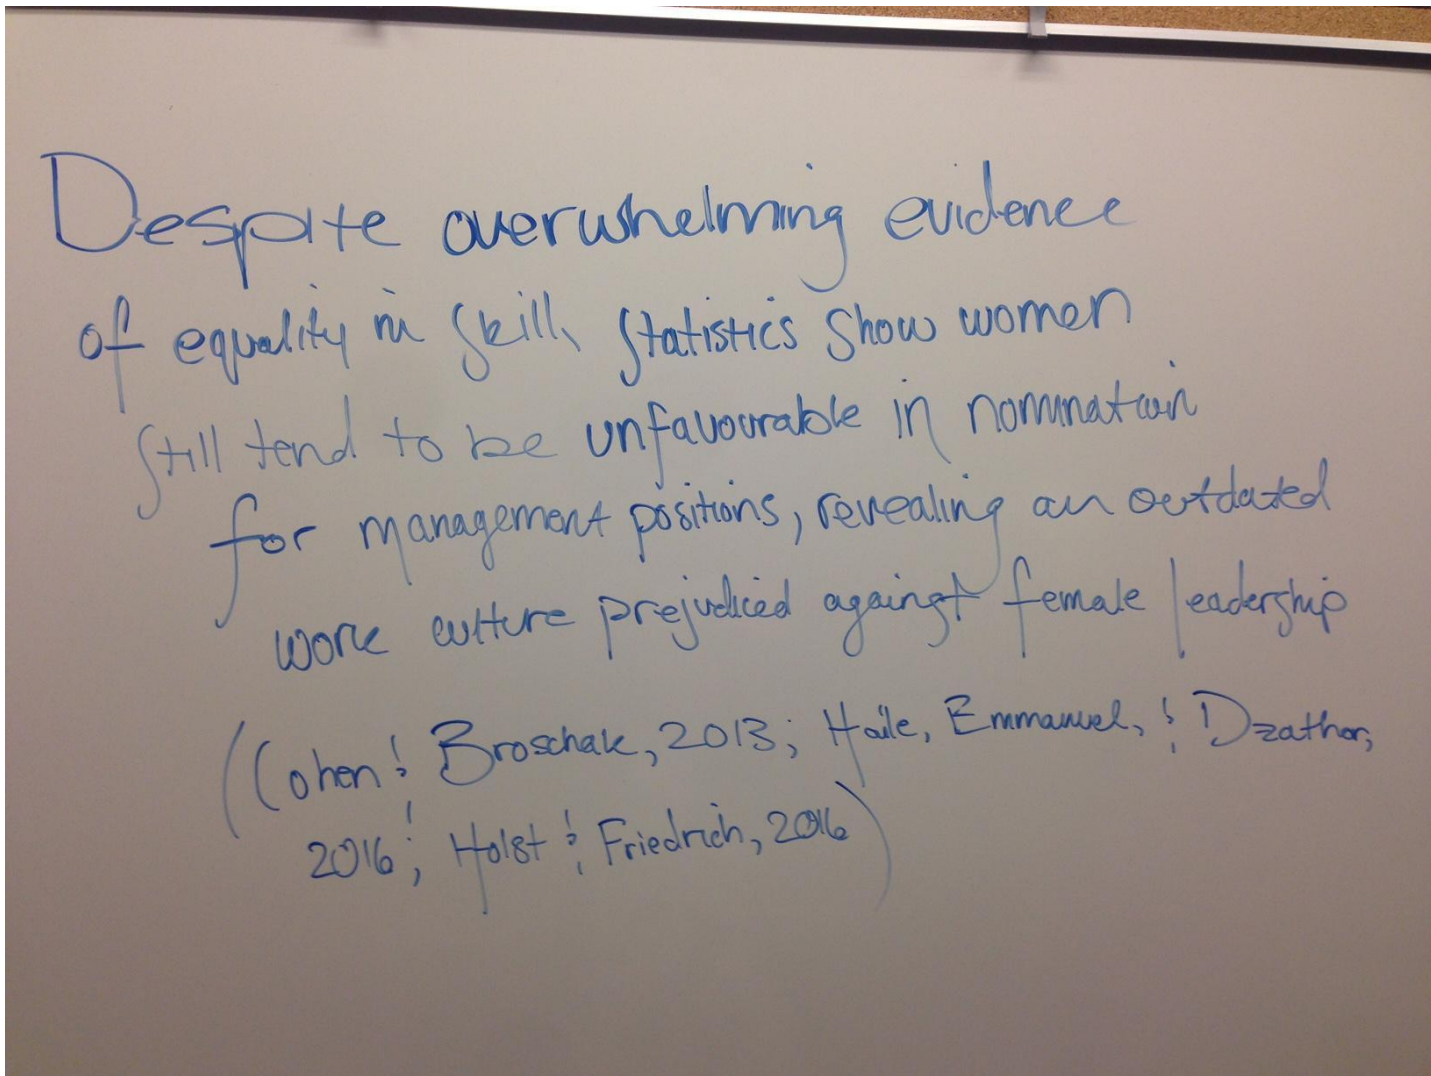 Despite overwhelming evidence
of equality in skill, statistics show women
still tend to be unfavourable in nomination
for management positions, revealing an outdated
work culture prejudiced against female leadership
(Cohen & Broschak, 2013; Haile, Emmanuel, & Dzathor,
2016; Holst & Friedrich, 2016)